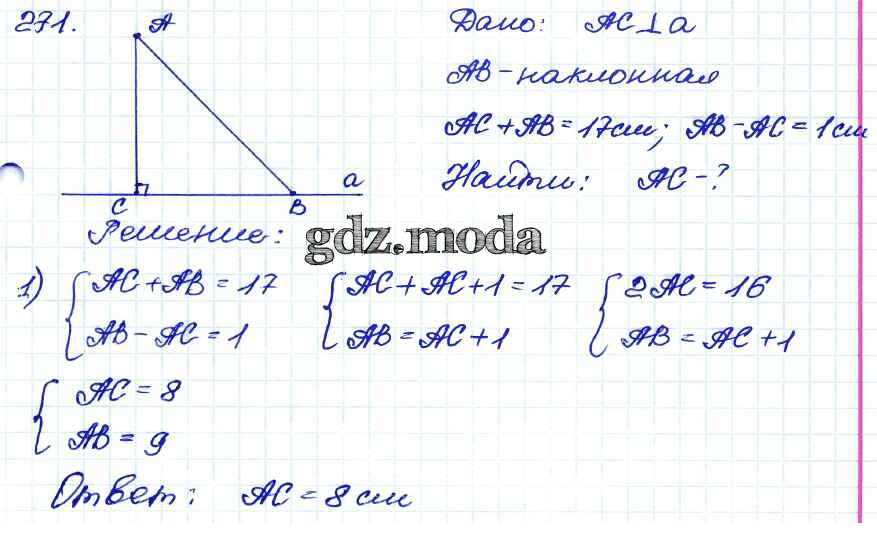 271.
A
C
B
a
Дано: AC⊥a
AB - наклонная
AC + AB = 17см; AB - AC = 1см
Найти: AC - ?
Решение:
gdz.moda
1) { AC + AB = 17 { AC + AC + 1 = 17 { 2AC = 16
AB - AC = 1 AB = AC + 1 AB = AC + 1
{ AC = 8
AB = 9
Ответ: AC = 8 см